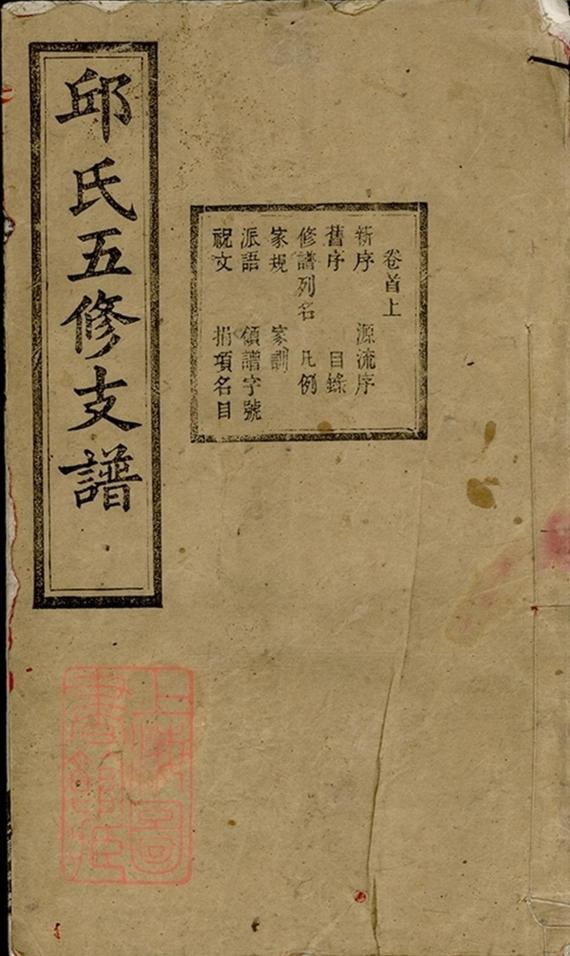 邱氏五修支譜
卷首上
新序 源流序
舊序 目錄
修譜列名 凡例
家規 家訓
派語 領譜字號
祝文 捐項名目
上海圖
書館藏